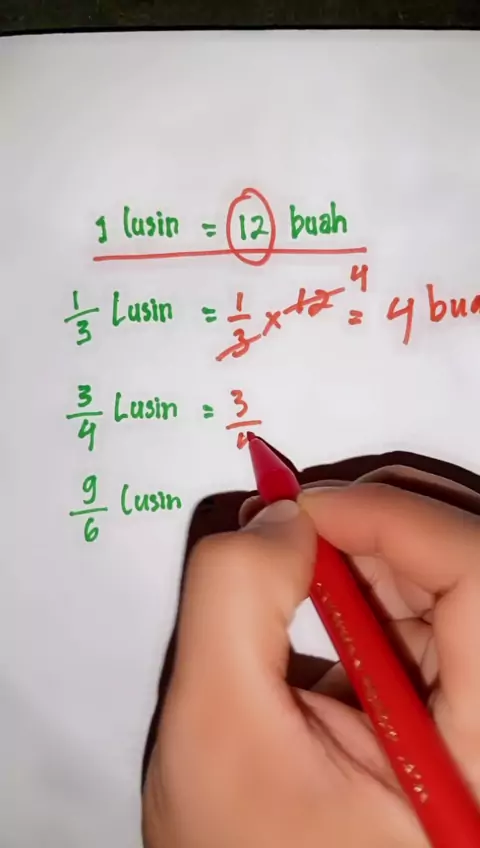 1 lusin = 12 buah
1/3 Lusin = 1/3 x 12 4 = 4
3/4 Lusin = 3/4
9/6 Lusin